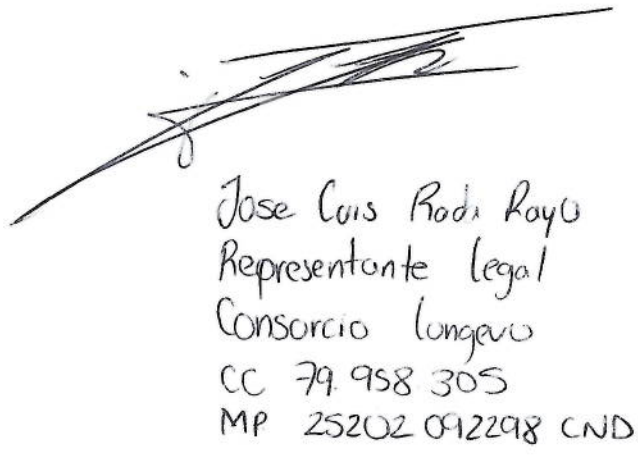 Jose Luis Rodi Rayo
Representante legal
Consorcio longevo
CC 79.958 305
MP 25202 092298 CND